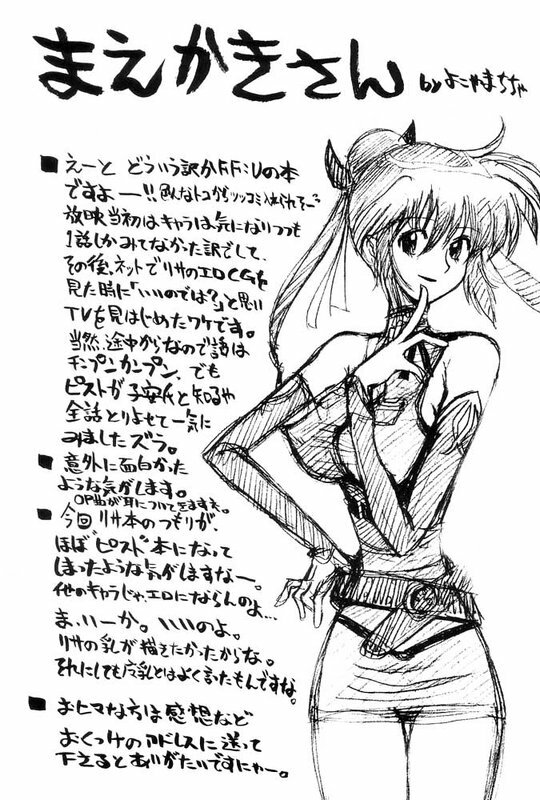 まえかきさん
by よこやまちちゃ
■えーと どういう訳かFF:Uの本
ですよー!!
放映当初はキャラは気になりつつも
1話しかみてなかった訳でして、
その後、ネットでリサのエロCGを
見た時に「いいのでは?」と思い
TVを見はじめたワケです。
当然、途中からなので話は
チンプンカンプン。でも
ピストが子安氏と知るや
全話とりよせて一気に
みましたズラ。
■意外に面白かった
ような気がします。
OP曲が耳について
■今回リサ本のつもりが、
ほぼ"ピスト"本になって
しまったような気がしますなー。
他のキャラじゃ、エロにならんのよ…
ま、いーか。いいのよ。
リサの乳が描きたかったからな。
それにしても とはよく言ったもんですな。
■おヒマな方は感想など
おくつけのアドレスに送って
下さるとありがたいですにゃー。